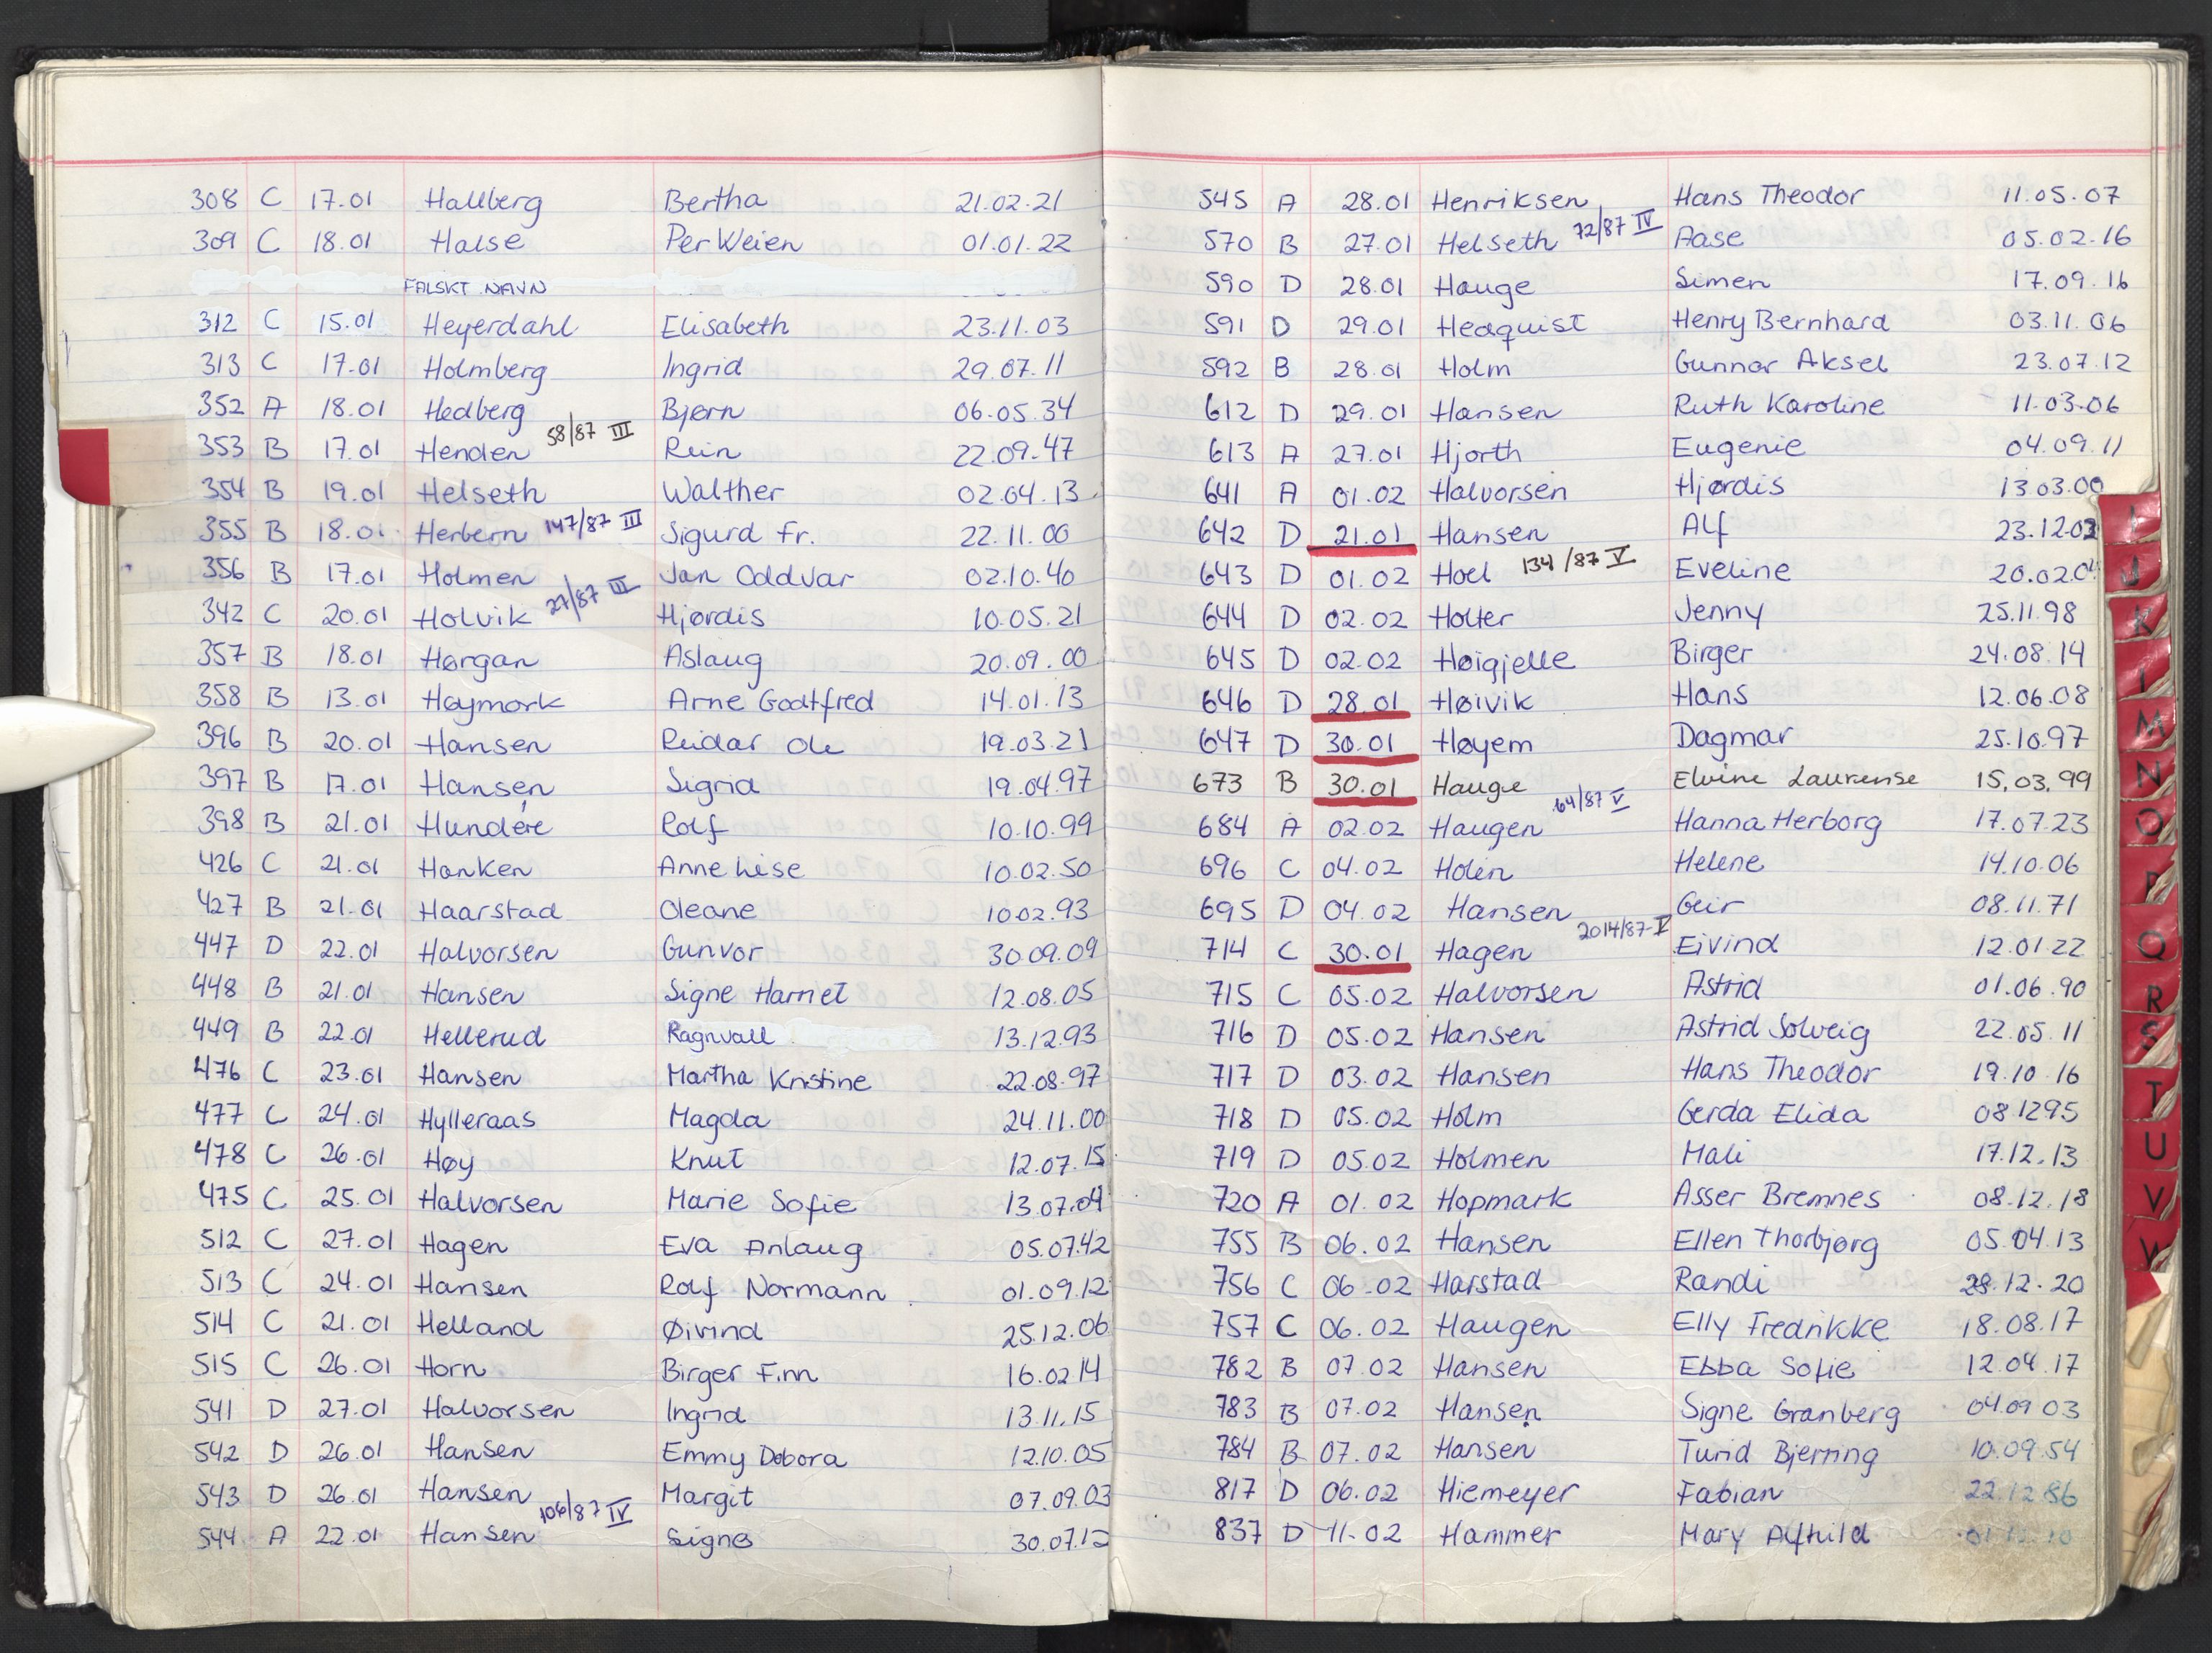 308 C 17.01 Hallberg Bertha 21.02.21
309 C 18.01 Halse Per Weien 01.01.22
FALSKT NAVN
312 C 15.01 Heyerdahl Elisabeth 23.11.03
313 C 17.01 Holmberg Ingrid 29.07.11
352 A 18.01 Hedberg Bjørn 06.05.34
353 B 17.01 Henden 58/87 III Rein 22.09.47
354 B 19.01 Helseth Walther 02.04.13
355 B 18.01 Herbern 147/87 III Sigurd Fr. 22.11.00
356 B 17.01 Holmen Jan Oddvar 02.10.40
342 C 20.01 Holvik 27/87 III Hjørdis 10.05.21
357 B 18.01 Hørgan Aslaug 20.09.00
358 B 13.01 Høymork Arne Godtfred 14.01.13
396 B 20.01 Hansen Reidar Ole 19.03.21
397 B 17.01 Hansen Sigrid 19.04.97
398 B 21.01 Hundere Rolf 10.10.99
426 C 21.01 Hanken Anne Lise 10.02.50
427 B 21.01 Haarstad Oleane 10.02.93
447 D 22.01 Halvorsen Gunvor 30.09.09
448 B 21.01 Hansen Signe Harriet 12.08.05
449 B 22.01 Hellerud Ragnvall 13.12.93
476 C 23.01 Hansen Martha Kristine 22.08.97
477 C 24.01 Hylleraas Magda 24.11.00
478 C 26.01 Høy Knut 12.07.15
475 C 25.01 Halvorsen Marie Sofie 13.07.04
512 C 27.01 Hagen Eva Anlaug 05.07.42
513 C 24.01 Hansen Rolf Normann 01.09.12
514 C 21.01 Helland Øivind 25.12.06
515 C 26.01 Horn Birger Finn 16.02.14
541 D 27.01 Halvorsen Ingrid 13.11.15
542 D 26.01 Hansen Emmy Debora 12.10.05
543 D 26.01 Hansen Margit 07.09.03
544 A 22.01 Hansen 106/87 IV Signe 30.07.12
545 A 28.01 Henriksen Hans Theodor 11.05.07
570 B 27.01 Helseth 72/87 IV Aase 05.02.16
590 D 28.01 Hauge Simen 17.09.16
591 D 29.01 Hedquist Henry Bernhard 03.11.06
592 B 28.01 Holm Gunnar Aksel 23.07.12
612 D 29.01 Hansen Ruth Karoline 11.03.06
613 A 27.01 Hjorth Eugenie 04.09.11
641 A 01.02 Halvorsen Hjørdis 13.03.00
642 D 21.01 Hansen Alf 23.12.03
643 D 01.02 Hoel 134/87 V Eveline
644 D 02.02 Holter Jenny 25.11.98
645 D 02.02 Høigjelle Birger 24.08.14
646 D 28.01 Høivik Hans 12.06.08
647 D 30.01 Høyem Dagmar 25.10.97
673 B 30.01 Hauge Elvine Laurense 15.03.99
684 A 02.02 Haugen 64/87 V Hanna Herborg 17.07.23
696 C 04.02 Holen Helene 14.10.06
695 D 04.02 Hansen Geir 08.11.71
714 C 30.01 Hagen 2014/87-V Eivind 12.01.22
715 C 05.02 Halvorsen Astrid 01.06.90
716 D 05.02 Hansen Astrid Solveig 22.05.11
717 D 03.02 Hansen Hans Theodor 19.10.16
718 D 05.02 Holm Gerda Elida 08.12.95
719 D 05.02 Holmen Mali 17.12.13
720 A 01.02 Hopmark Asser Bremnes 08.12.18
755 B 06.02 Hansen Ellen Thorbjørg 05.04.13
756 C 06.02 Harstad Randi 28.12.20
757 C 06.02 Haugen Elly Fredrikke 18.08.17
782 B 07.02 Hansen Ebba Sofie 12.04.17
783 B 07.02 Hansen Signe Granberg 04.09.03
784 B 07.02 Hansen Turid Bjerring 10.09.54
817 D 06.02 Hiemeyer Fabian 22.12.86
837 D 11.02 Hammer Mary Alfhild
I
J
K
L
M
N
O
P
Q
R
S
T
U
V
W